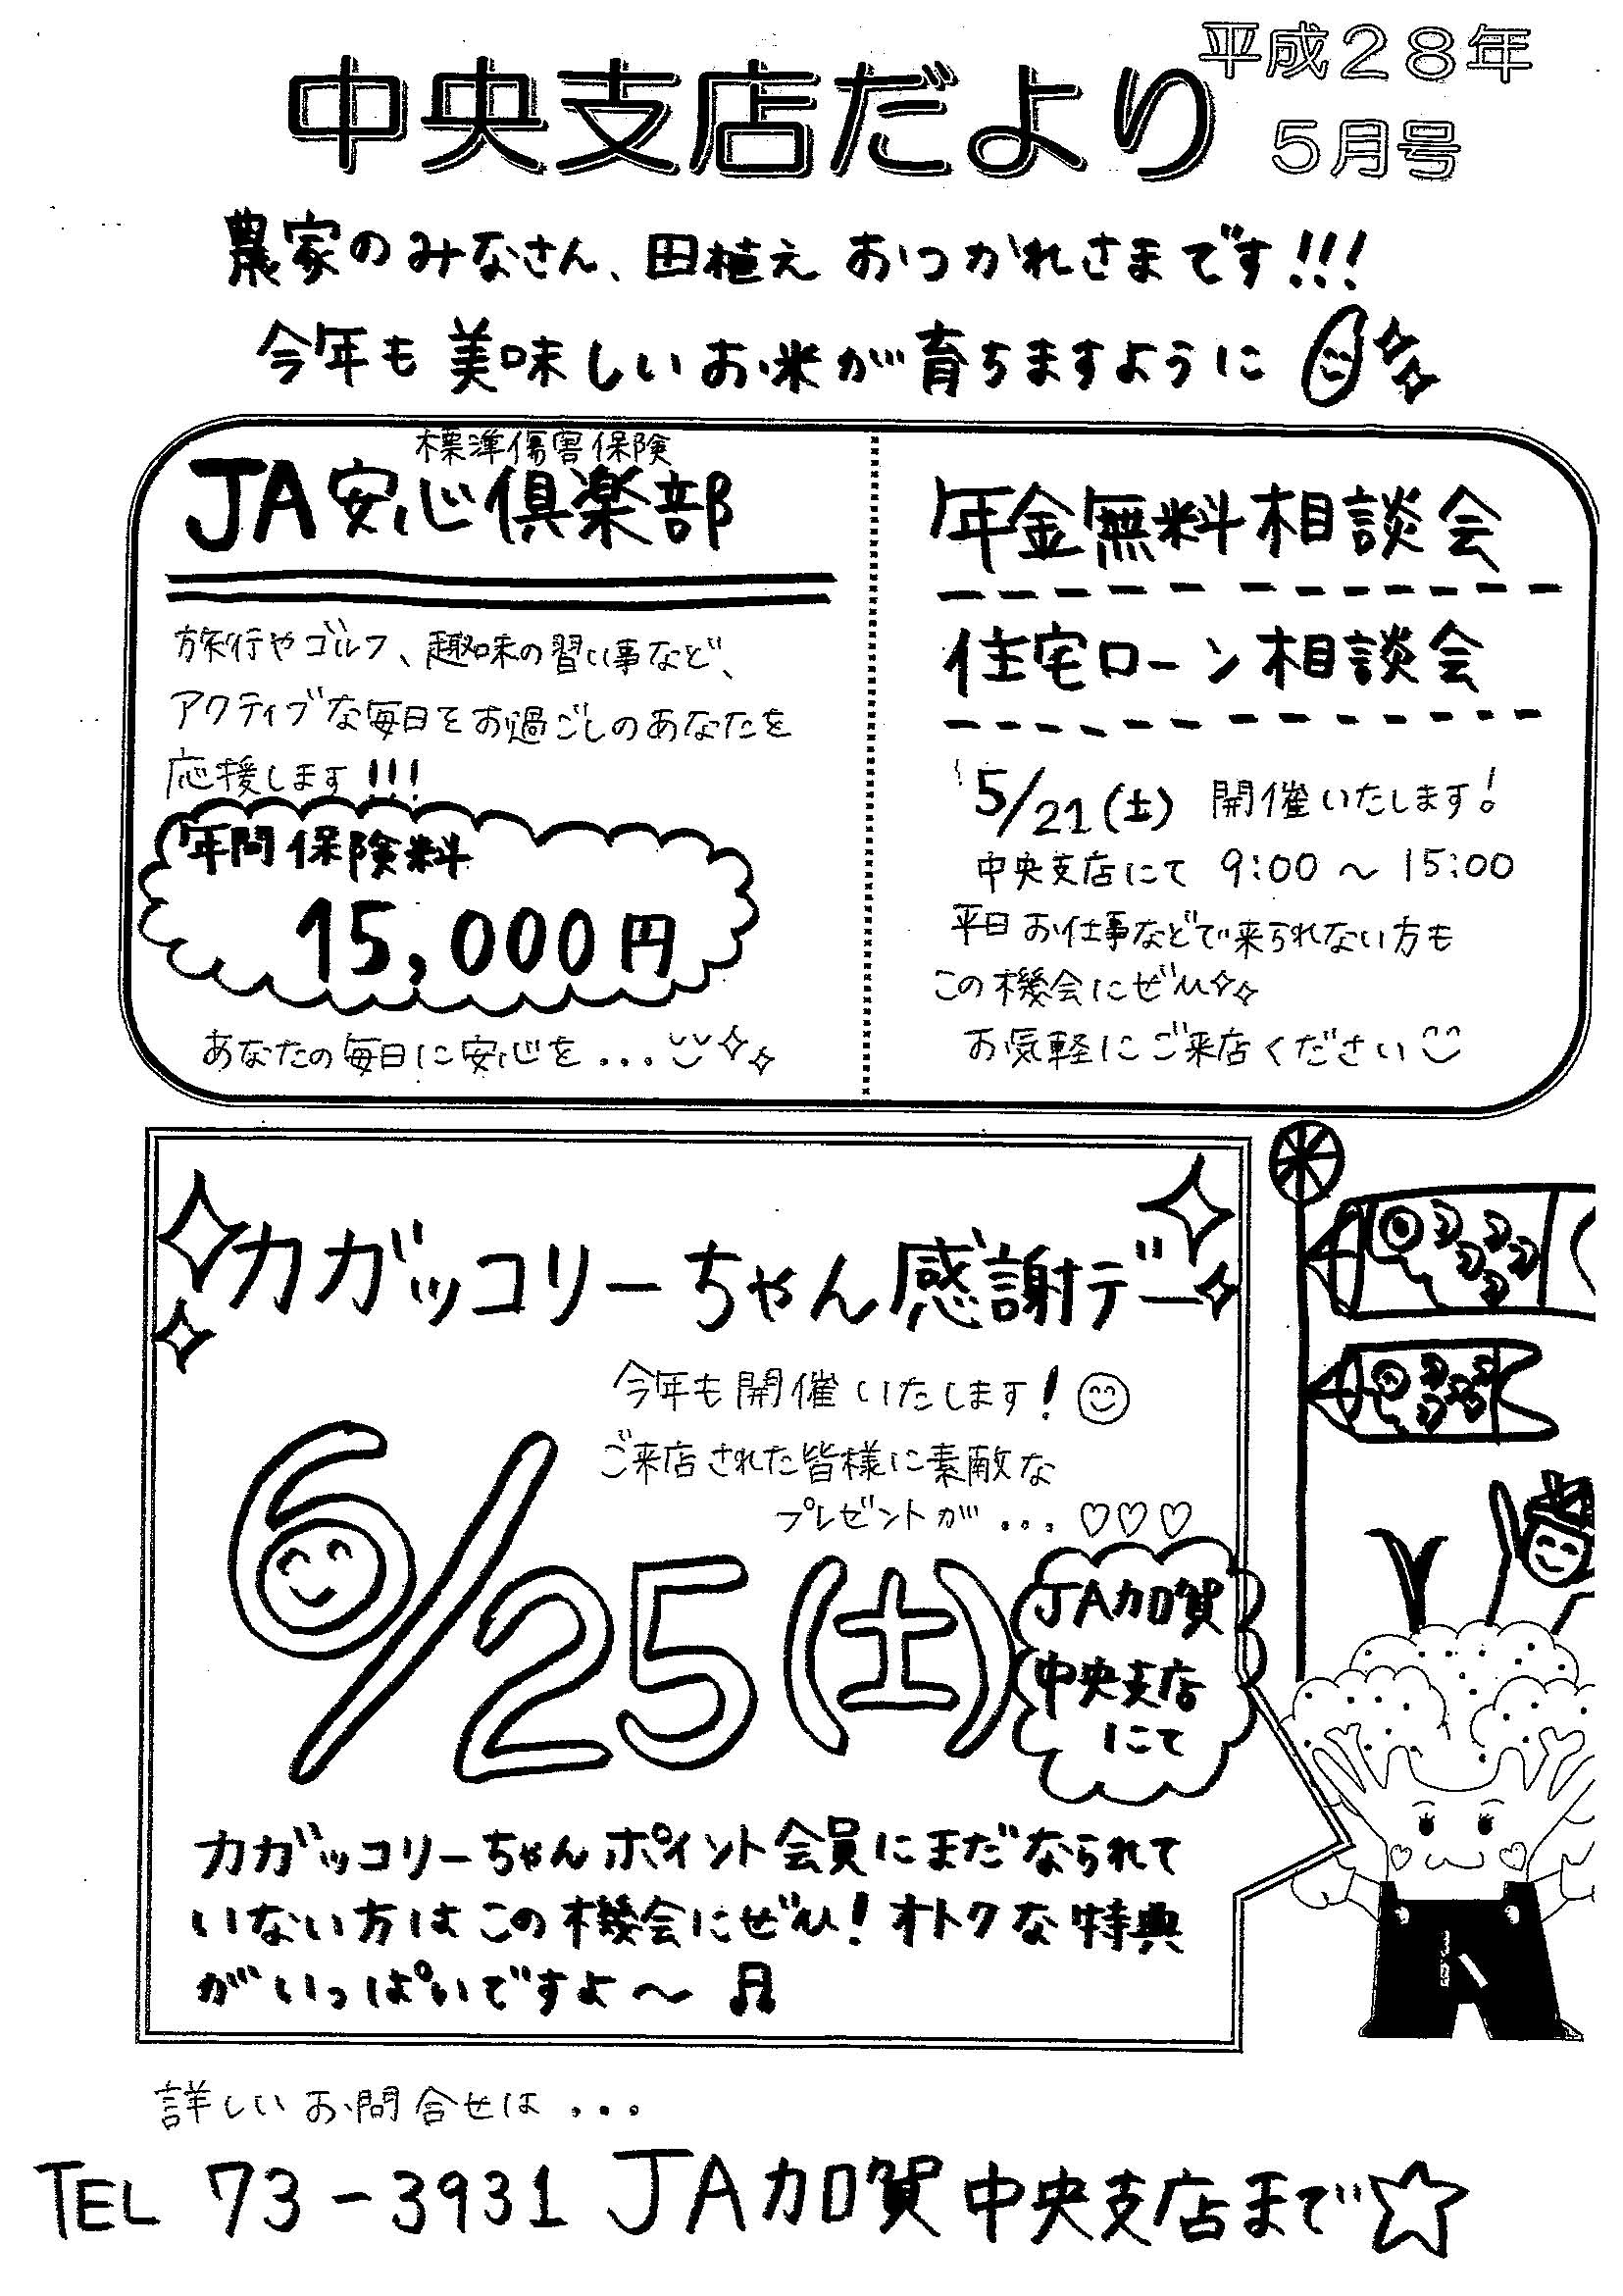 中央支店だより
平成28年
5月号
農家のみなさん、田植えおつかれさまです!!!
今年も美味しいお米が育ちますように
標準傷害保険
JA安心倶楽部
旅行やゴルフ、趣味の習い事など、
アクティブな毎日をお過ごしのあなたを
応援します!!!
年間保険料
15,000円
あなたの毎日に安心を...
年金無料相談会
住宅ローン相談会
5/21(土) 開催いたします!
中央支店にて 9:00〜15:00
平日お仕事などで来られない方も
この機会にぜひ
お気軽にご来店ください
カガッコリーちゃん感謝デー
今年も開催いたします!
ご来店された皆様に素敵な
プレゼントが...♡♡♡
6/25(土)
JA加賀
中央支店
にて
カガッコリーちゃんポイント会員にまだなられて
いない方はこの機会にぜひ!オトクな特典
がいっぱいですよ〜♫
詳しいお問合せは...
TEL 73-3931 JA加賀中央支店まで☆